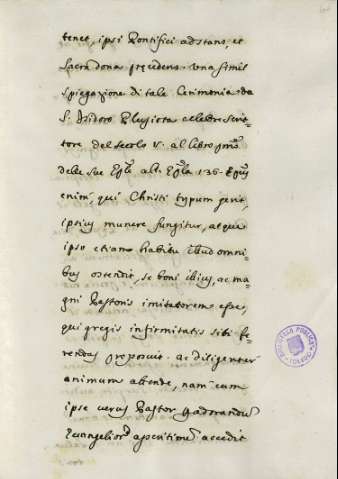 tenet, ipsi Pontifici adstans, et
Sacra dona præcedens. Una simil
spiegazione di tale Cerimonia da
S. Isidoro Pelusiota celebre scrit-
tore del secolo V. al libro pmõ
delle sue alt. 136.
enim, qui Christi typum gerit,
ipsius munere fungitur, atque
ipso etiam habitu illud omni-
bus ostendit, se boni illius, ac ma-
gni Pastoris imitatorem esse,
qui gregis infirmitatis sibi fe-
rendas proposuit. ac diligenter
animum attende, nam cum
ipse verus Pastor
Evangelior apertione accedit
BIBLIOTECA PUBLICA
TOLEDO